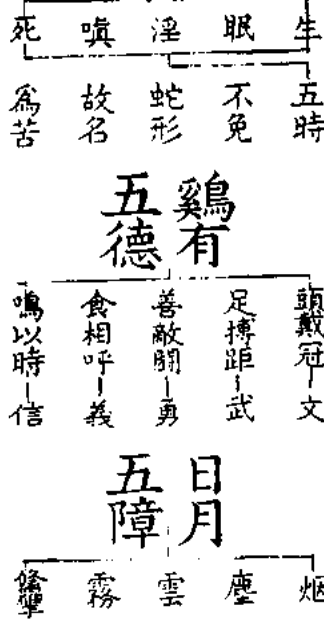 生
眠
淫
嗔
死
五時
不免
蛇形
故名
爲苦
鷄有
五德
頭戴冠―文
足搏距―武
善敵鬪―勇
食相呼―義
鳴以時―信
日月
五障
烟
塵
雲
霧